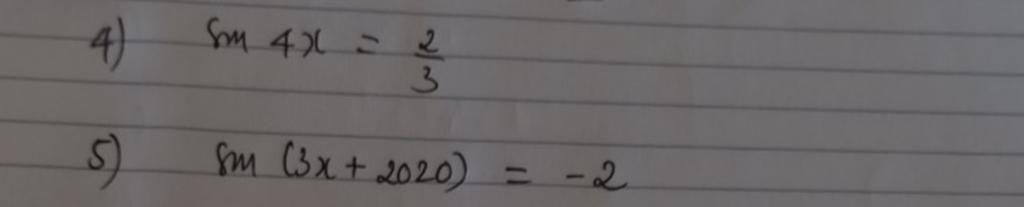 4) sin 4x = 2/3
5) sin (3x + 2020) = -2